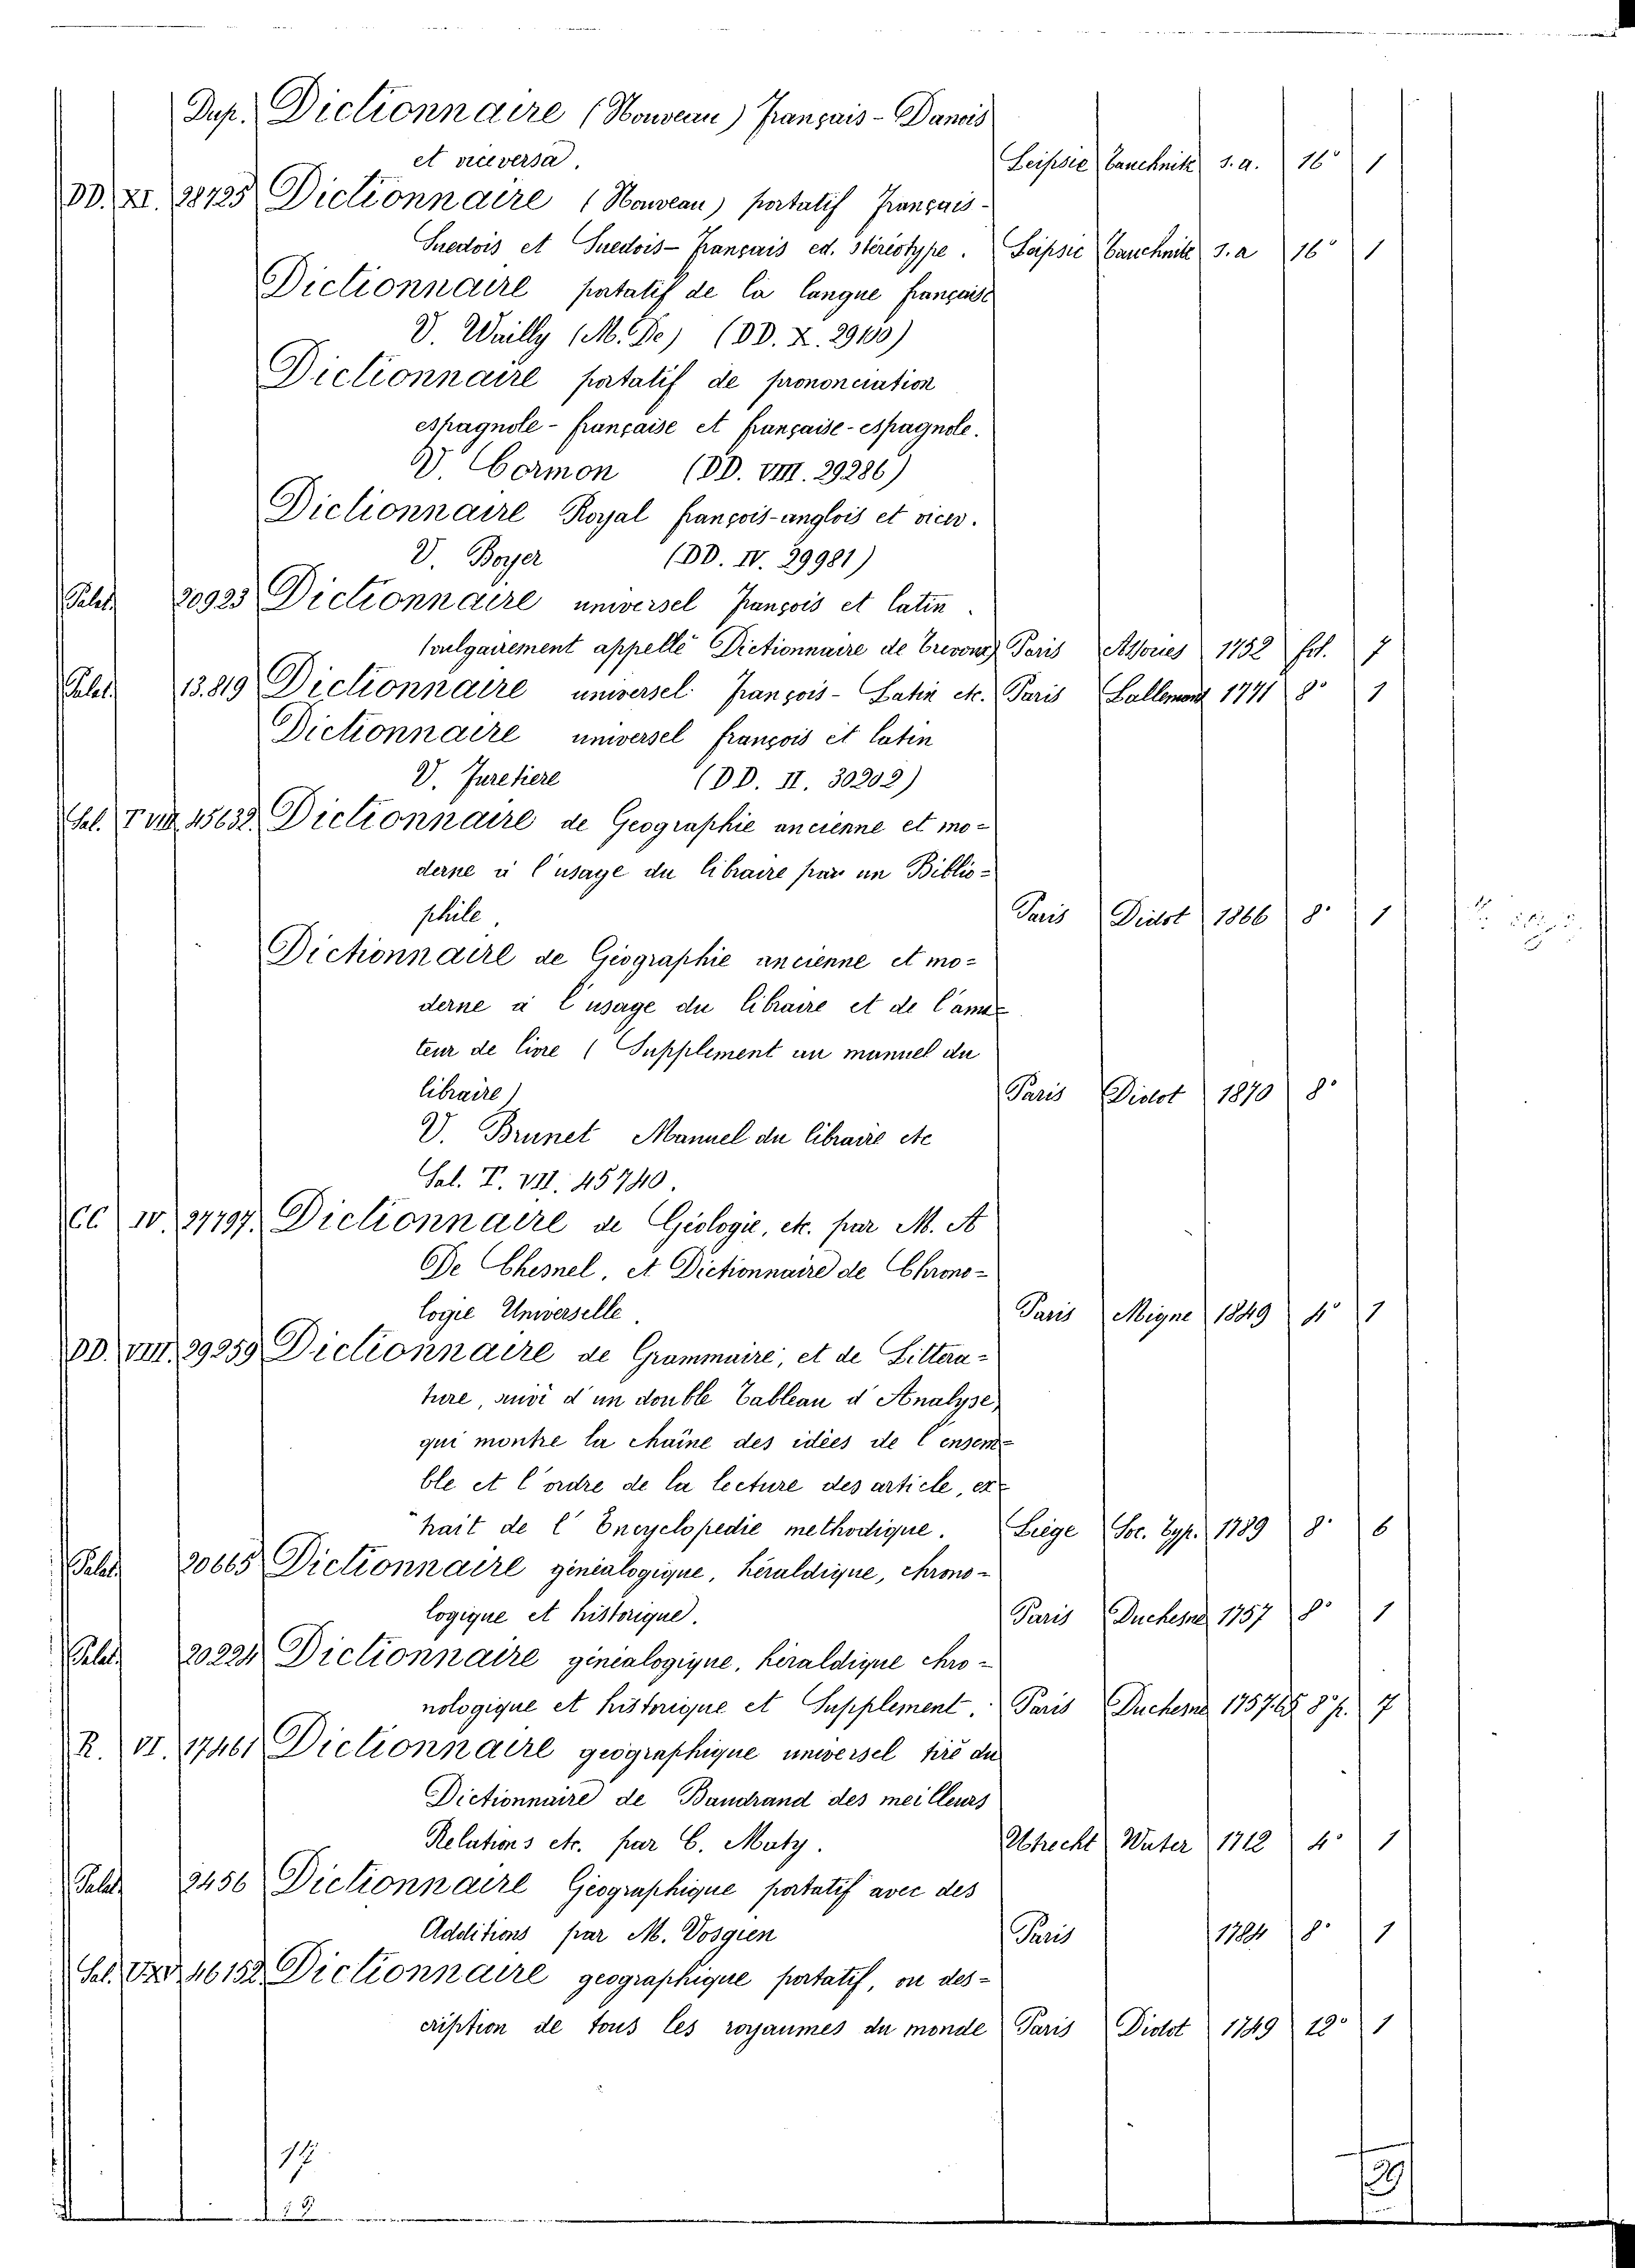 Dup. Dictionnaire (Nouveau) Français - Danois
et viceversa. Leipsic Tauchnitz s. a. 16° 1
DD. XI. 28725 Dictionnaire (Nouveau) portatif Français-
Suedois et Suedois - Français ed. stéréotype. Leipsic Tauchnitz s. a 16° 1
Dictionnaire portatif de la langue française
V. Wailly (M. De) (DD. X. 29100)
Dictionnaire portatif de prononciation
espagnole - française et française - espagnole.
V. Cormon (DD. VIII. 29286)
Dictionnaire Royal françois - anglois et vicev.
V. Boyer (DD. IV. 29981)
Palat. 20923 Dictionnaire universel François et latin.
(vulgairement appellé Dictionnaire de Trevoux) Paris Assoiés 1752 fol. 7
Palat. 13.819 Dictionnaire universel François - Latin etc. Paris Lallemant 1771 8° 1
Dictionnaire universel françois et latin
V. Furetiere (DD. II. 30202)
Sal. T VIII 45632. Dictionnaire de Geographie ancienne et mo-
derne à l'usage du libraire par un Biblio-
phile. Paris Didot 1866 8° 1
Dictionnaire de Géographie ancienne et mo-
derne à l'usage du libraire et de l'ama-
teur de livre (Supplement au manuel du
libraire) Paris Didot 1870 8°
V. Brunet Manuel du libraire etc
Sal. T. VII. 45740.
CC IV. 27797. Dictionnaire de Géologie, etc. par M. A
De Chesnel, et Dictionnaire de Chrono-
logie Universelle. Paris Migne 1849 4° 1
DD. VIII. 29259 Dictionnaire de Grammaire, et de Littera-
ture, suivi d'un double Tableau d'Analyse,
qui montre la chaîne des idées de l'ensem-
ble et l'ordre de la lecture des article, ex-
trait de l'Encyclopedie methodique. Liège Soc. Typ. 1789 8° 6
Palat. 20665 Dictionnaire généalogique, héraldique, chrono-
logique et historique. Paris Duchesne 1757 8° 1
Palat. 20224 Dictionnaire généalogique, héraldique chro-
nologique et historique et Supplement. Paris Duchesne 1757.65 8° p. 7
R. VI. 17461 Dictionnaire géographique universel tiré du
Dictionnaire de Baudrand des meilleurs
Relations etc. par C. Maty. Utrecht Water 1712 4° 1
Palat. 2456 Dictionnaire Géographique portatif avec des
Additions par M. Vosgien Paris 1784 8° 1
Sal. 46152 Dictionnaire geographique portatif, ou des-
cription de tous les royaumes du monde Paris Didot 1749 12° 1
17
39